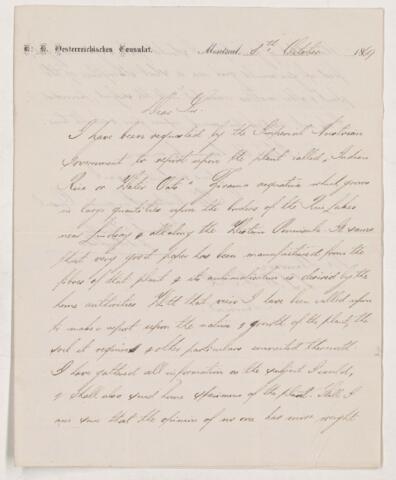 K: K. Oesterreichisches Consulat. Montreal. 8th October 1869
Dear Sir.
I have been requested by the Imperial Austrian
Government to report upon the plant called, Indian
Rice or Water Oats" which grows
in large quantities upon the borders of the Rice Lakes
near Lindsay & all along the Western Peninsula.
plant very good paper has been manufactured from the
fibres of that plant & its is desired by the
home authorities. With that view I have been called upon
to make a report upon the nature & growth of the plant, the
soil it requires & other particulars connected therewith.
I have gathered all information on the subject I could,
& shall also send home specimens of the plant. Still I
am sure that the opinion of no one has more weight